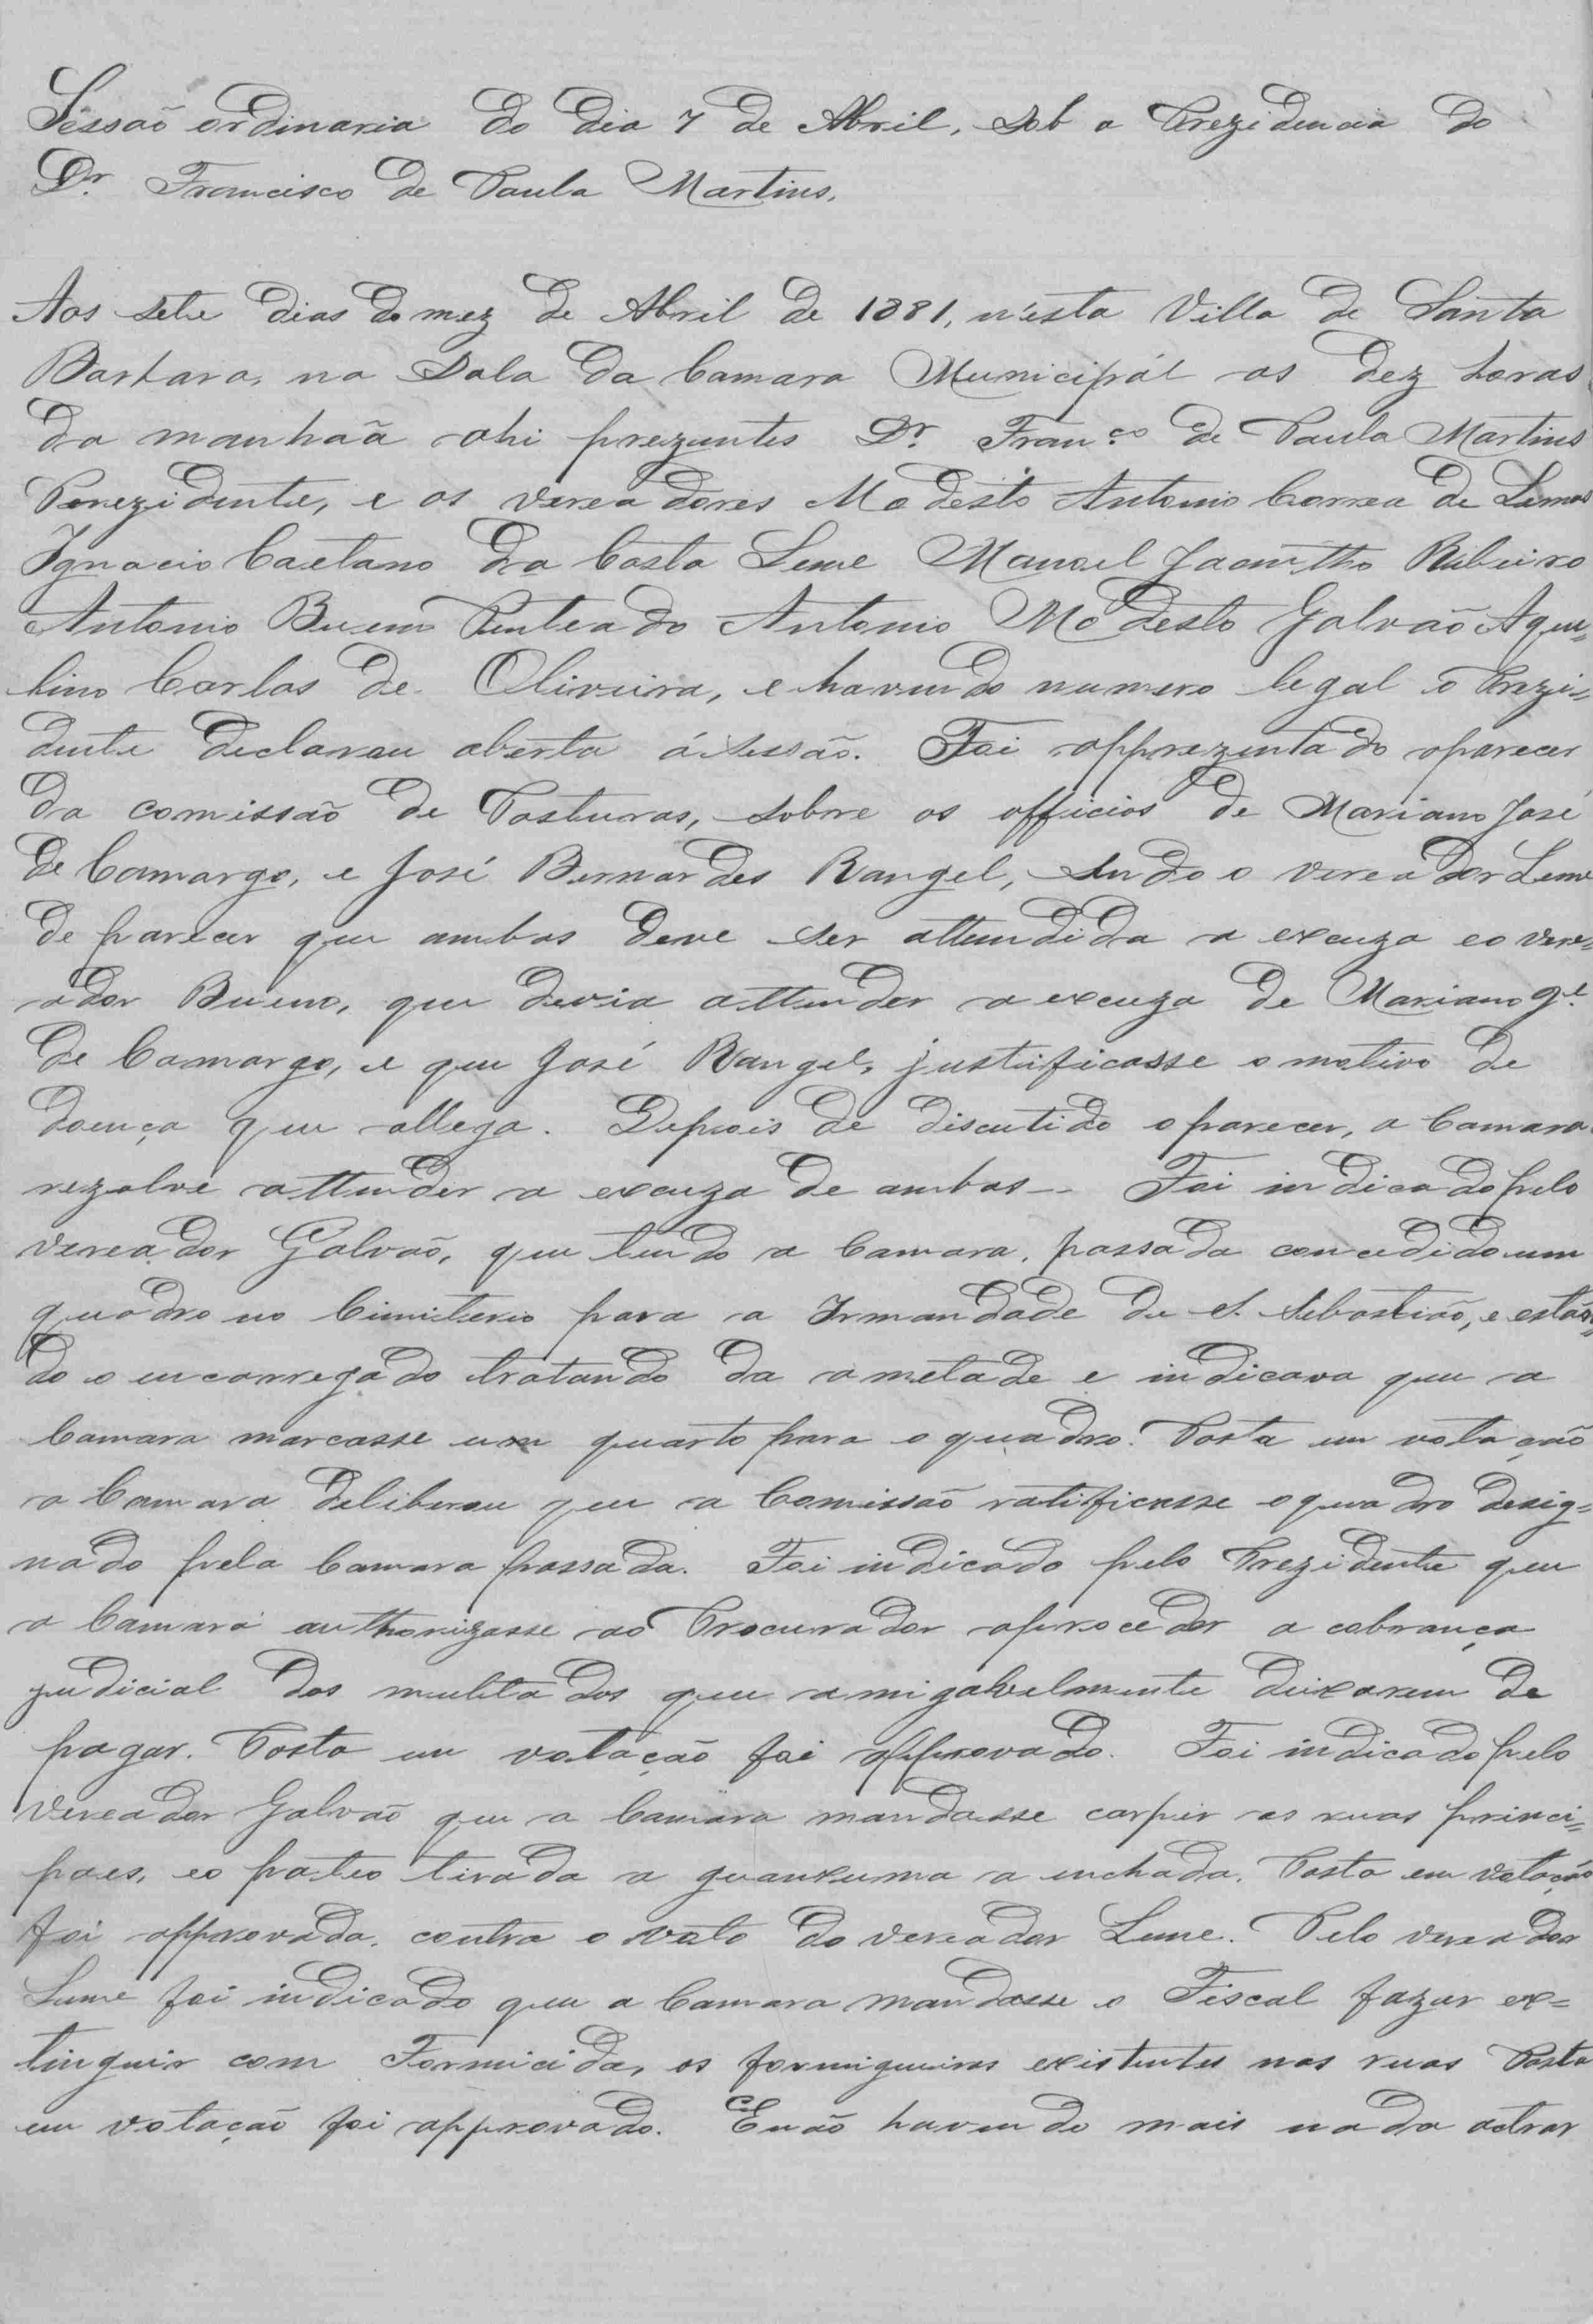 Sessaõ ordinaria do dia 7 de Abril, sob a Prezidencia do
Dr. Francisco de Paula Martins.
Aos sete dias do mez de Abril de 1881, n'esta Villa de Santa
Barbara, na Sala da Camara Municipál as dez horas
da manhaã ahi prezentes Dr. Franco. de Paula Martins
Prezidente, e os vereadores Modesto Antonio Correa de Lemos
Ignacio Caetano da Costa Leme Manoel Jacintho Ribeiro
Antonio Bueno Penteado Antonio Modesto Galvaõ Aque=
lino Carlos de Oliveira, e havendo numero legal o Prezi=
dente declarou aberta á sessão. Foi apprezentado o parecer
da comissão de Posturas, sobre os officios de Mariano José
de Camargo, e José Bernardes Rangel, sendo o vereador Leme
de parecer que ambos deve ser attendida a excuza e o vere=
ador Bueno, que devia attender a excuza de Mariano Je.
de Camargo, e que José Rangel, justificasse o motivo de
doença que allega. Depois de discutido o parecer, a Camara
rezolve attender a excuza de ambos — Foi indicado pelo
vereador Galvaõ, que tendo a Camara, passada concedido um
quadro no Cimiterio para a Irmandade de S. Sebastiaõ, e estan=
do o encarregado tratando da ametade e indicava que a
Camara marcasse um quarto para o quadro. Posta em votação
a Camara deliberou que a Comissaõ ratificasse o quadro desig=
nado pela Camara passada. Foi indicado pelo Prezidente que
a Camara authorizasse ao Procurador a proceder a cobrança
judicial dos multados que amigavelmente deixarem de
pagar. Posto em votação foi approvado. Foi indicado pelo
Vereador Galvaõ que a Camara mandasse carpir as ruas princi=
paes, e o pateo tirada a guanxuma a enchada. Posto em votação
foi approvada, contra o voto do vereador Leme. Pelo vereador
Leme foi indicado que a Camara mandasse o Fiscal fazer ex=
tinguir com Formicida, os formigueiros existentes nas ruas Posto
em votação foi approvado. E não havendo mais nada a trar